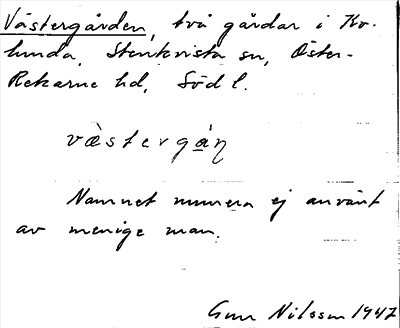 Västergården, två gårdar i Ko-
lunda, Stenkvista sn, Öster-
Rekarne hd, Södl.
vὰstergåṇ
Namnet numera ej använt
av menige man.
Gun Nilsson 1947